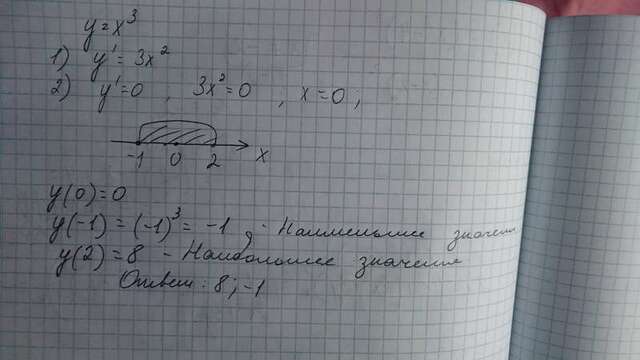 y=x³
1) y' = 3x²
2) y'=0 , 3x²=0 , x=0;
-1 0 2 x
y(0)=0
y(-1) = (-1)³ = -1 - Наименьшее значени
y(2)=8 - Наибольшее значение
Ответ: 8; -1